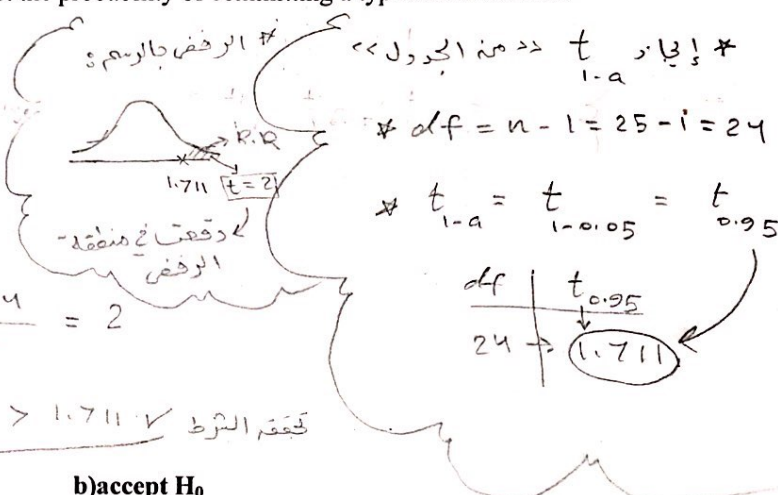 * الرفض بالرسم :
R.R
1.711 t = 2
وقعت في منطقة
الرفض
= 2
> 1.711 ✓ تحقق الشرط
* إيجاد t 1-a << من الجدول >>
* df = n - 1 = 25 - 1 = 24
* t 1-a = t 1-0.05 = t 0.95
df | t 0.95
24 → 1.711
b)accept H₀